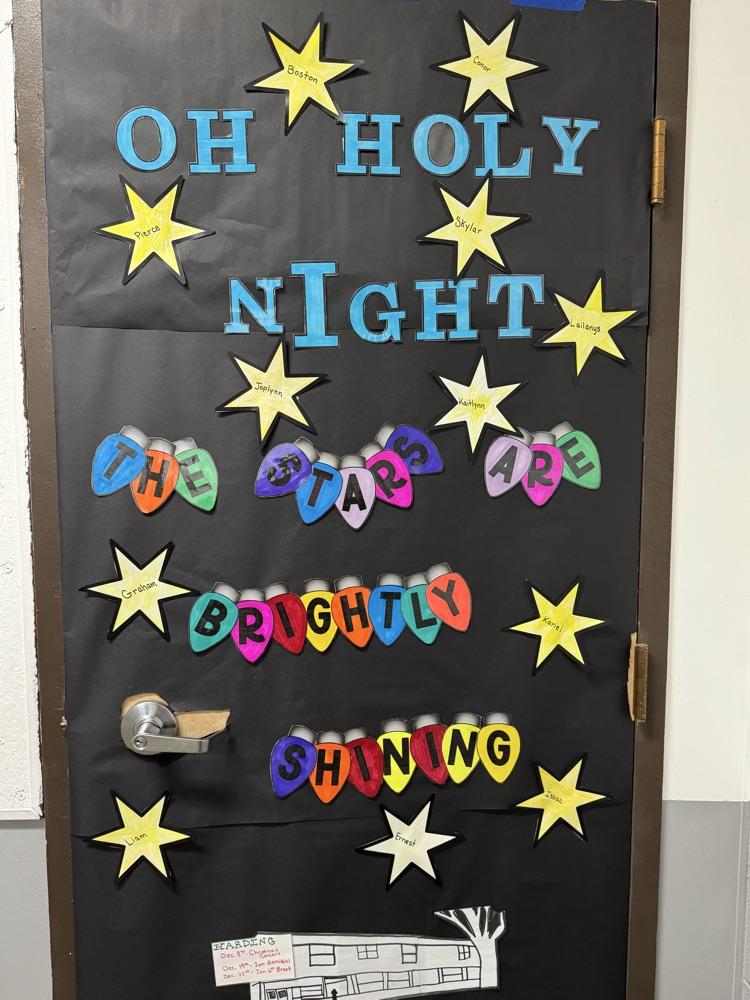 Boston
Conor
OH HOLY
Pierce
Skylar
NIGHT
Lailanys
Joplynn
Kaitlynn
THE STARS ARE
Graham
BRIGHTLY
Kariel
SHINING
Isaac
Liam
Ernest
HARDING
Dec. 8th Christmas
Concert
Dec. 19th - 2pm dismissal
Dec. 22nd - Jan. 6th Break